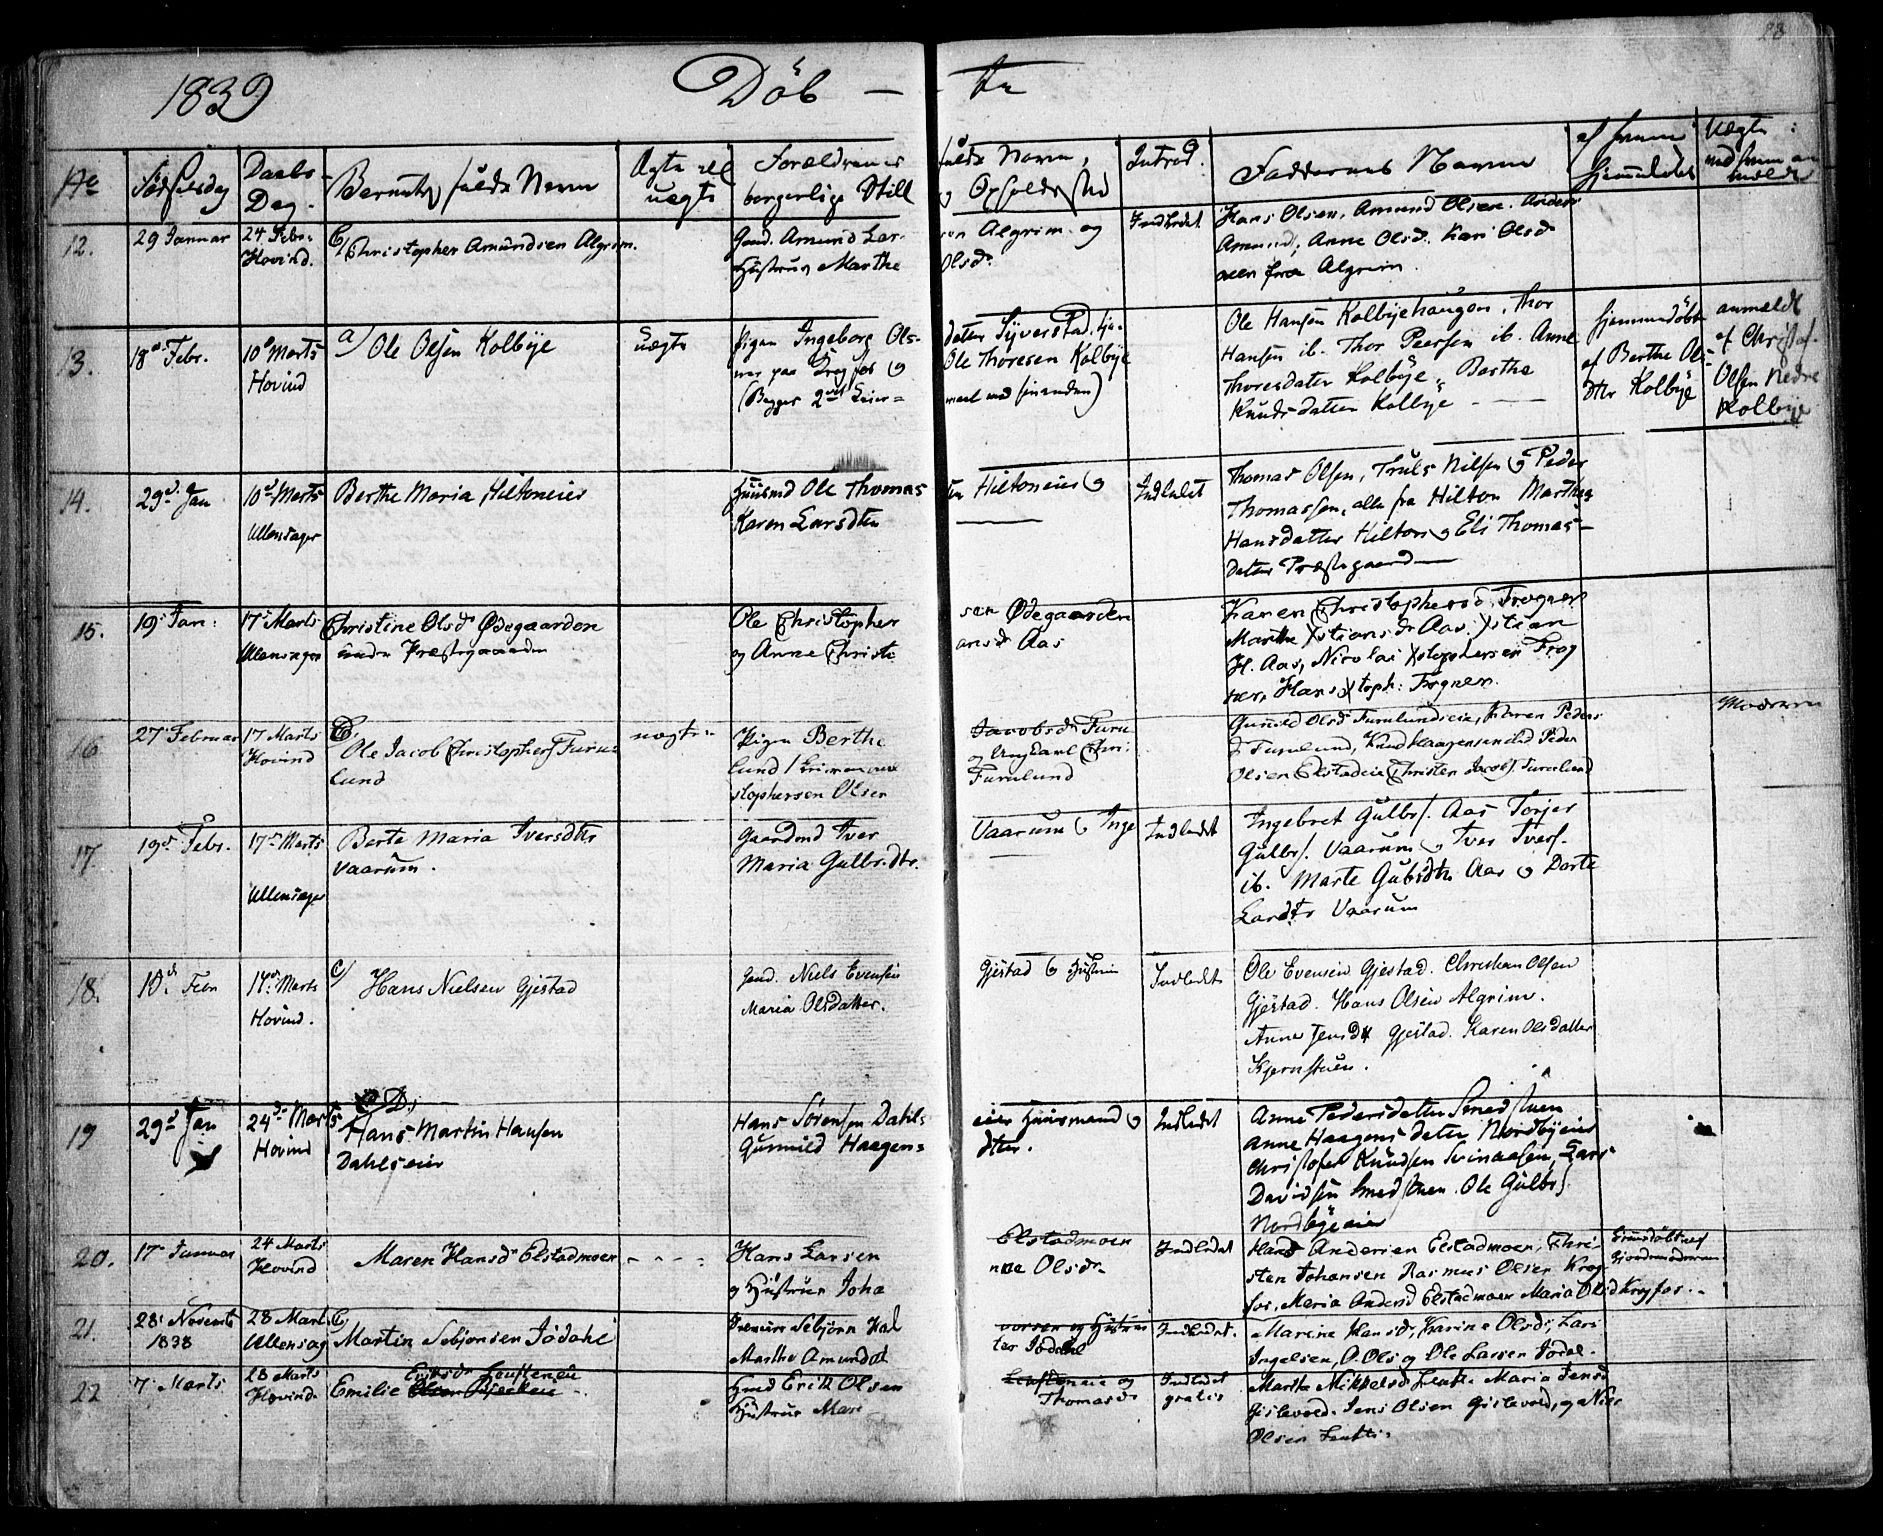 28
1839 Döb - te
No
Födselsdag
Daabs-
Dag.
Barnets fulde Navn
Ægte ell
uægte
Forældrenes
borgerlige Still
fulde Navn,
Opholdssted
Introd.
Faddernes Navne
om hjemmedøbt
Uægte:
12. 29 Januar
24 Febr:
Hovind.
Christopher Amundsen Algrim.
Gmd. Amund Lar-
Hustrue Marthe
sen Algrim og
Olsd.
Indledet
Hans Olsen, Amund Olsen. Anders
Amund, Anne Olsd. Kari Olsd
fra Algrim.
13. 18 Febr.
10 Marts
Hovind
a/ Ole Olsen Kolbye
uægte
Pigen Ingeborg Ols-
paa Krogfos og
(Begges 2det Leier=
datter Syverstad,
Ole Thoresen Kolbye
maal med hinanden)
Ole Hansen Kolbyehaugen, Thor
Hansen ib. Thor Peersen ib. Anne
Thoresdatter Kolbye, Berthe
Knudsdatter Kolbye
hjemmedöbt
af Berthe Ols-
dtr Kolbye
anmeldt
af Christof.
Olsen nedre
Kolbye
14. 29d Jan
10d Marts
Ullensager
Berthe Maria Hiltoneier
Huusmd Ole Thomas
Karen Larsdtr
sen Hiltoneier og
Indledet
Thomas Olsen, Truls Nilsen og Peder
Thomassen, alle fra Hilton Marthe
Hansdatter Hilton og Eli Thomas-
datter Præstegaard
15. 19 Jan:
17 Marts
Ullensager
Christine Olsd Ødegaarden
under Præstegaarden
Ole Christopher
og Anne Christi
sen Ødegaarden
ansd Aas
Karen Christophersd. Frogner
Marthe Xstiansd Aas. Xstian
H. Aas, Nicolai Xstophersen Frog
ner, Hans Xstoph: Frogner.
16 27 Februar
17 Marts
Hovind
Ole Jacob Christophers Furu
lund
uægte
Pigen Berthe
lund
stophersen Olsen
Jacobsd Furu
og Ungkarl Chri:
Furulund
Gunild Olsd Furulundeie, Karen Peders
d Furulund, Knud Haagensen Peder
Olsen Elstadeie Christen Jacobs. Furulund
Moderen
17. 19d Febr.
17 Marts
Ullensager
Berte Maria Iversdtr
Vaarum.
Gaardmd Iver
Maria Gulbr.dtr.
Vaarum og Inge
Indledet
Ingebret Gulbrs. Aas Torjer
Gulbrs. Vaarum og Iver Ivers.
ib. Marte Gulbsdtr Aas og Dorte
Larsdtr Vaarum
18. 10d Febr
17d Marts
Hovind.
c/ Hans Nielsen Gjestad
Gmd. Niels Evensen
Maria Olsdatter.
Gjestad og Hustrue
Indledet
Ole Evensen Gjestad. Christian Olsen
Gjestad. Hans Olsen Algrim.
Anne Jensdtr Gjestad. Karen Olsdatter
Kjernstuen.
19 29d Jan
24d Marts
Hovind
D.
Hans Martin Hansen
Dahlseier
Hans Sörensen Dahls
Gunnild Haagens=
eier Huusmand og
dtter.
Indledet
Anne Pedersdatter Smedstuen
Anne Haagensdatter Nordbyeier
Christofer Knudsen Svinaasen, Lars
Davidsen Smedstuen. Ole Gulbrs.
Nordbyeeier
20. 17 Januar
24 Marts
Hovind
Maren Hansd Elstadmoen
Hans Larsen
og Hustrue Joha
Elstadmoen
nne Olsdr.
Indledet
Hans Andersen Elstadmoen, Chri-
sten Johansen Rasmus Olsen Krog
fos, Maria Andersd Elstadmoen Maria Olsd Krogfos.
hjemdöbt af
Gjordemoderen
21. 28 Novemb
1838
28 Marts
Ullensag
Martin Sebjonsen Jödahl
Sebjörn Hal
Marthe Amundsd
vorsen og Hustrue
ter Jödahl
Indledet.
Marine Hansd, Karine Olsd, Lars
Ingelsen, O. Ols og Ole Larsen Jödal.
22 7 Marts
28 Marts
Hovind
Eriksdr
Emilie
Hmd Erik Olsen
Hustrue Mari
og
Thomasd
Indledet
gratis
Marthe Mikkelsd Maria Jensd
Gislevold. Jens Olsen Gislevold, og Nils
Olsen